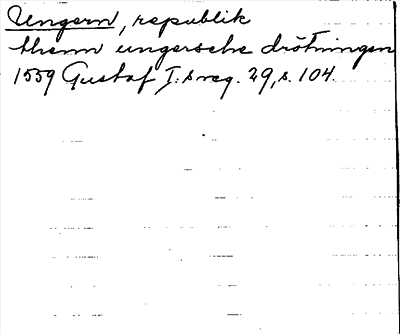 Ungern, republik
thenn ungersche drötningen
1559 Gustaf I:s reg. 29, s. 104.